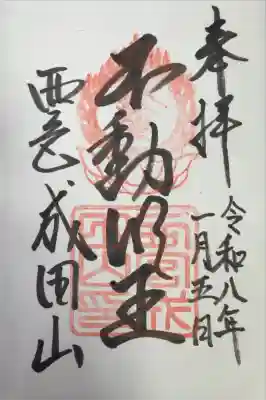 奉拝
令和八年
一月五日
不動明王
成田山